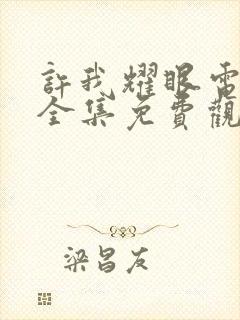 許我耀眼電
全集免費觀
梁昌友